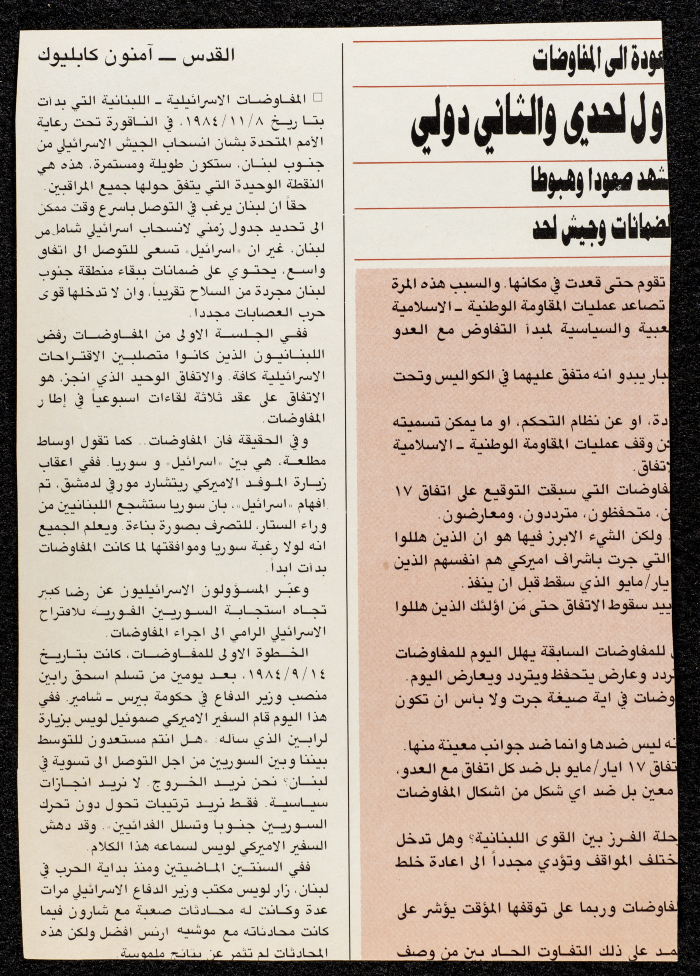 عودة الى المفاوضات
ول لحدي والثاني دولي
شهد صعودا وهبوطا
لضمانات وجيش لحد
تقوم حتى قعدت في مكانها. والسبب هذه المرة
تصاعد عمليات المقاومة الوطنية ـ الاسلامية
عبية والسياسية لمبدأ التفاوض مع العدو
بار يبدو انه متفق عليهما في الكواليس وتحت
دة، او عن نظام التحكم، او ما يمكن تسميته
كن وقف عمليات المقاومة الوطنية ـ الاسلامية
لاتفاق.
فاوضات التي سبقت التوقيع على اتفاق ١٧
ن، متحفظون، مترددون، ومعارضون.
ولكن الشيء الابرز فيها هو ان الذين هللوا
التي جرت باشراف اميركي هم انفسهم الذين
يار/مايو الذي سقط قبل ان ينفذ.
ييد سقوط الاتفاق حتى من اؤلئك الذين هللوا
للمفاوضات السابقة يهلل اليوم للمفاوضات
تردد وعارض يتحفظ ويتردد ويعارض اليوم.
وضات في اية صيغة جرت ولا بأس ان تكون
نه ليس ضدها وانما ضد جوانب معينة منها.
تفاق ١٧ ايار/مايو بل ضد كل اتفاق مع العدو،
معين بل ضد اي شكل من اشكال المفاوضات
حلة الفرز بين القوى اللبنانية؟ وهل تدخل
ختلف المواقف وتؤدي مجدداً الى اعادة خلط
فاوضات وربما على توقفها المؤقت يؤشر على
مد على ذلك التفاوت الحاد بين من وصف
القدس ــ آمنون كابليوك
□ المفاوضات الاسرائيلية ـ اللبنانية التي بدأت
بتاريخ ١٩٨٤/١١/٨، في الناقورة تحت رعاية
الأمم المتحدة بشأن انسحاب الجيش الاسرائيلي من
جنوب لبنان، ستكون طويلة ومستمرة، هذه هي
النقطة الوحيدة التي يتفق حولها جميع المراقبين.
حقاً ان لبنان يرغب في التوصل بأسرع وقت ممكن
الى تحديد جدول زمني لانسحاب اسرائيلي شامل من
لبنان، غير ان «اسرائيل» تسعى للتوصل الى اتفاق
واسع، يحتوي على ضمانات ببقاء منطقة جنوب
لبنان مجردة من السلاح تقريباً، وان لا تدخلها قوى
حرب العصابات مجددا.
ففي الجلسة الاولى من المفاوضات رفض
اللبنانيون الذين كانوا متصلبين الاقتراحات
الاسرائيلية كافة. والاتفاق الوحيد الذي انجز، هو
الاتفاق على عقد ثلاثة لقاءات اسبوعياً في إطار
المفاوضات.
وفي الحقيقة فان المفاوضات.. كما تقول اوساط
مطلعة، هي بين «اسرائيل» و سوريا. ففي اعقاب
زيارة الموفد الاميركي ريتشارد مورفي لدمشق، تم
افهام «اسرائيل»، بان سوريا ستشجع اللبنانيين من
وراء الستار، للتصرف بصورة بناءة. ويعلم الجميع
انه لولا رغبة سوريا وموافقتها لما كانت المفاوضات
بدأت ابدأ.
وعبّر المسؤولون الاسرائيليون عن رضا كبير
تجاه استجابة السوريين الفورية للاقتراح
الاسرائيلي الرامي الى اجراء المفاوضات.
الخطوة الاولى للمفاوضات، كانت بتاريخ
١٩٨٤/٩/١٤، بعد يومين من تسلم اسحق رابين
منصب وزير الدفاع في حكومة بيرس ـ شامير. ففي
هذا اليوم قام السفير الاميركي صموئيل لويس بزيارة
لرابين الذي سأله. «هل انتم مستعدون للتوسط
بيننا وبين السوريين من اجل التوصل الى تسوية في
لبنان؟ نحن نريد الخروج. لا نريد انجازات
سياسية. فقط نريد ترتيبات تحول دون تحرك
السوريين جنوبا وتسلل الفدائيين». وقد دهش
السفير الاميركي لويس لسماعه هذا الكلام.
ففي السنتين الماضيتين ومنذ بداية الحرب في
لبنان، زار لويس مكتب وزير الدفاع الاسرائيلي مرات
عدة وكانت له محادثات صعبة مع شارون فيما
كانت محادثاته مع موشيه ارنس افضل ولكن هذه
المحادثات لم تثمر عن نتائج ملموسة.